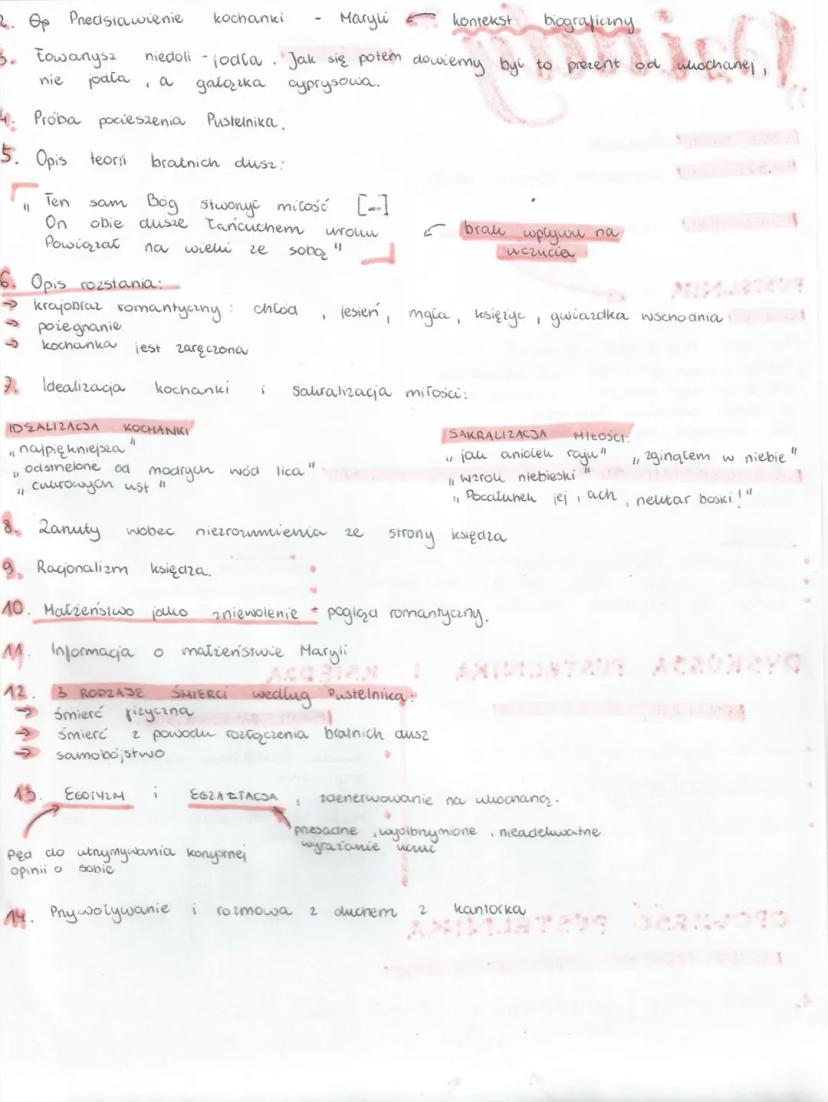 2. Op Przedstawienie kochanki - Maryli ← kontekst biograficzny
3. Towarzysz niedoli - jodła. Jak się potem dowiemy był to prezent od ukochanej,
nie jodła, a gałązka cyprysowa.
4. Próba pocieszenia Pustelnika.
5. Opis teorii bratnich dusz:
"Ten sam Bóg stworzył miłość [...]
On obie dusze łańcuchem uroku
Powiązał na wieki ze sobą"
← brak wpływu na
uczucia
6. Opis rozstania:
→ krajobraz romantyczny: chłód, jesień, mgła, księżyc, gwiazdka wschodnia
→ pożegnanie
→ kochanka jest zaręczona
7. Idealizacja kochanki i sakralizacja miłości:
IDEALIZACJA KOCHANKI
"najpiękniejsza"
"odstrzelone od modrych wód lica"
"cukrowych ust"
SAKRALIZACJA MIŁOŚCI:
"jak aniołek raju" "zginąłem w niebie"
"wzrok niebieski"
"Pocałunek jej, ach, nektar boski!"
8. Zarzuty wobec niezrozumienia ze strony księdza
9. Racjonalizm księdza.
10. Małżeństwo jako zniewolenie - pogląd romantyczny.
11. Informacja o małżeństwie Maryli
12. 3 RODZAJE ŚMIERCI według Pustelnika:
→ śmierć fizyczna
→ śmierć z powodu rozłączenia bratnich dusz
→ samobójstwo
13. EGOTYZM i EGZALTACJA, zdenerwowanie na ukochaną.
przesadne, wyolbrzymione, nieadekwatne
wyrażanie uczuć
Pęd do utrzymywania korzystnej
opinii o sobie
14. Przywoływanie i rozmowa z duchem z kantorka